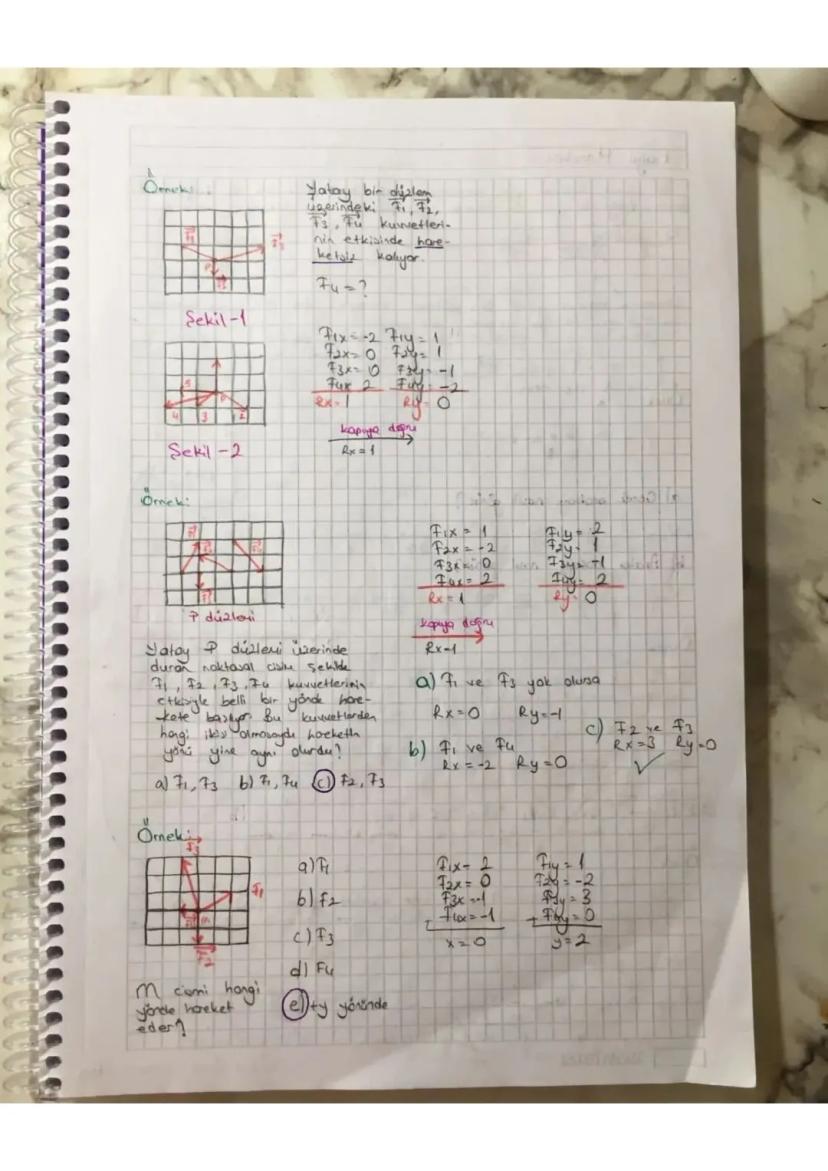 Örnek:
Yatay bir düzlem
üzerindeki F1, F2,
F3, F4 kuvvetleri-
nin etkisinde hare-
ketsiz kalıyor.
F4 = ?
F1
F3
P
Şekil-1
F1x = -2 F1y = 1
F2x = 0 F2y = 1
F3x = 0 F3y = -1
F4x 2 F4y = -2
Rx = 1 Ry = 0
kapıya doğru
Rx = 1
5
4 3 2
Şekil - 2
Örnek:
F1x = 1 F1y = 2
F2x = -2 F2y = 1
F3x = 0 F3y = -1
F4x = 2 F4y = 2
Rx = 1 Ry = 0
kapıya doğru
Rx-1
P düzlemi
Yatay P düzlemi üzerinde
duran noktasal cisim şekilde
F1, F2, F3, F4 kuvvetlerinin
etkisiyle belli bir yönde hare-
kete başlıyor. Bu kuvvetlerden
hangi ikisi olmasaydı hareketin
yönü yine aynı olurdu?
a) F1, F3 b) F1, F4 c) F2, F3
a) F1 ve F3 yok olursa
Rx = 0 Ry = -1
b) F1 ve F4
Rx = -2 Ry = 0
c) F2 ve F3
Rx = 3 Ry = 0
Örnek:
F3
F1
m
F2
a) F1
b) F2
c) F3
d) F4
e) +y yönünde
F1x = 2 F1y = 1
F2x = 0 F2y = -2
F3x = -1 F3y = 3
+ F4x = -1 + F4y = 0
x = 0 y = 2
m cismi hangi
yönde hareket
eder?